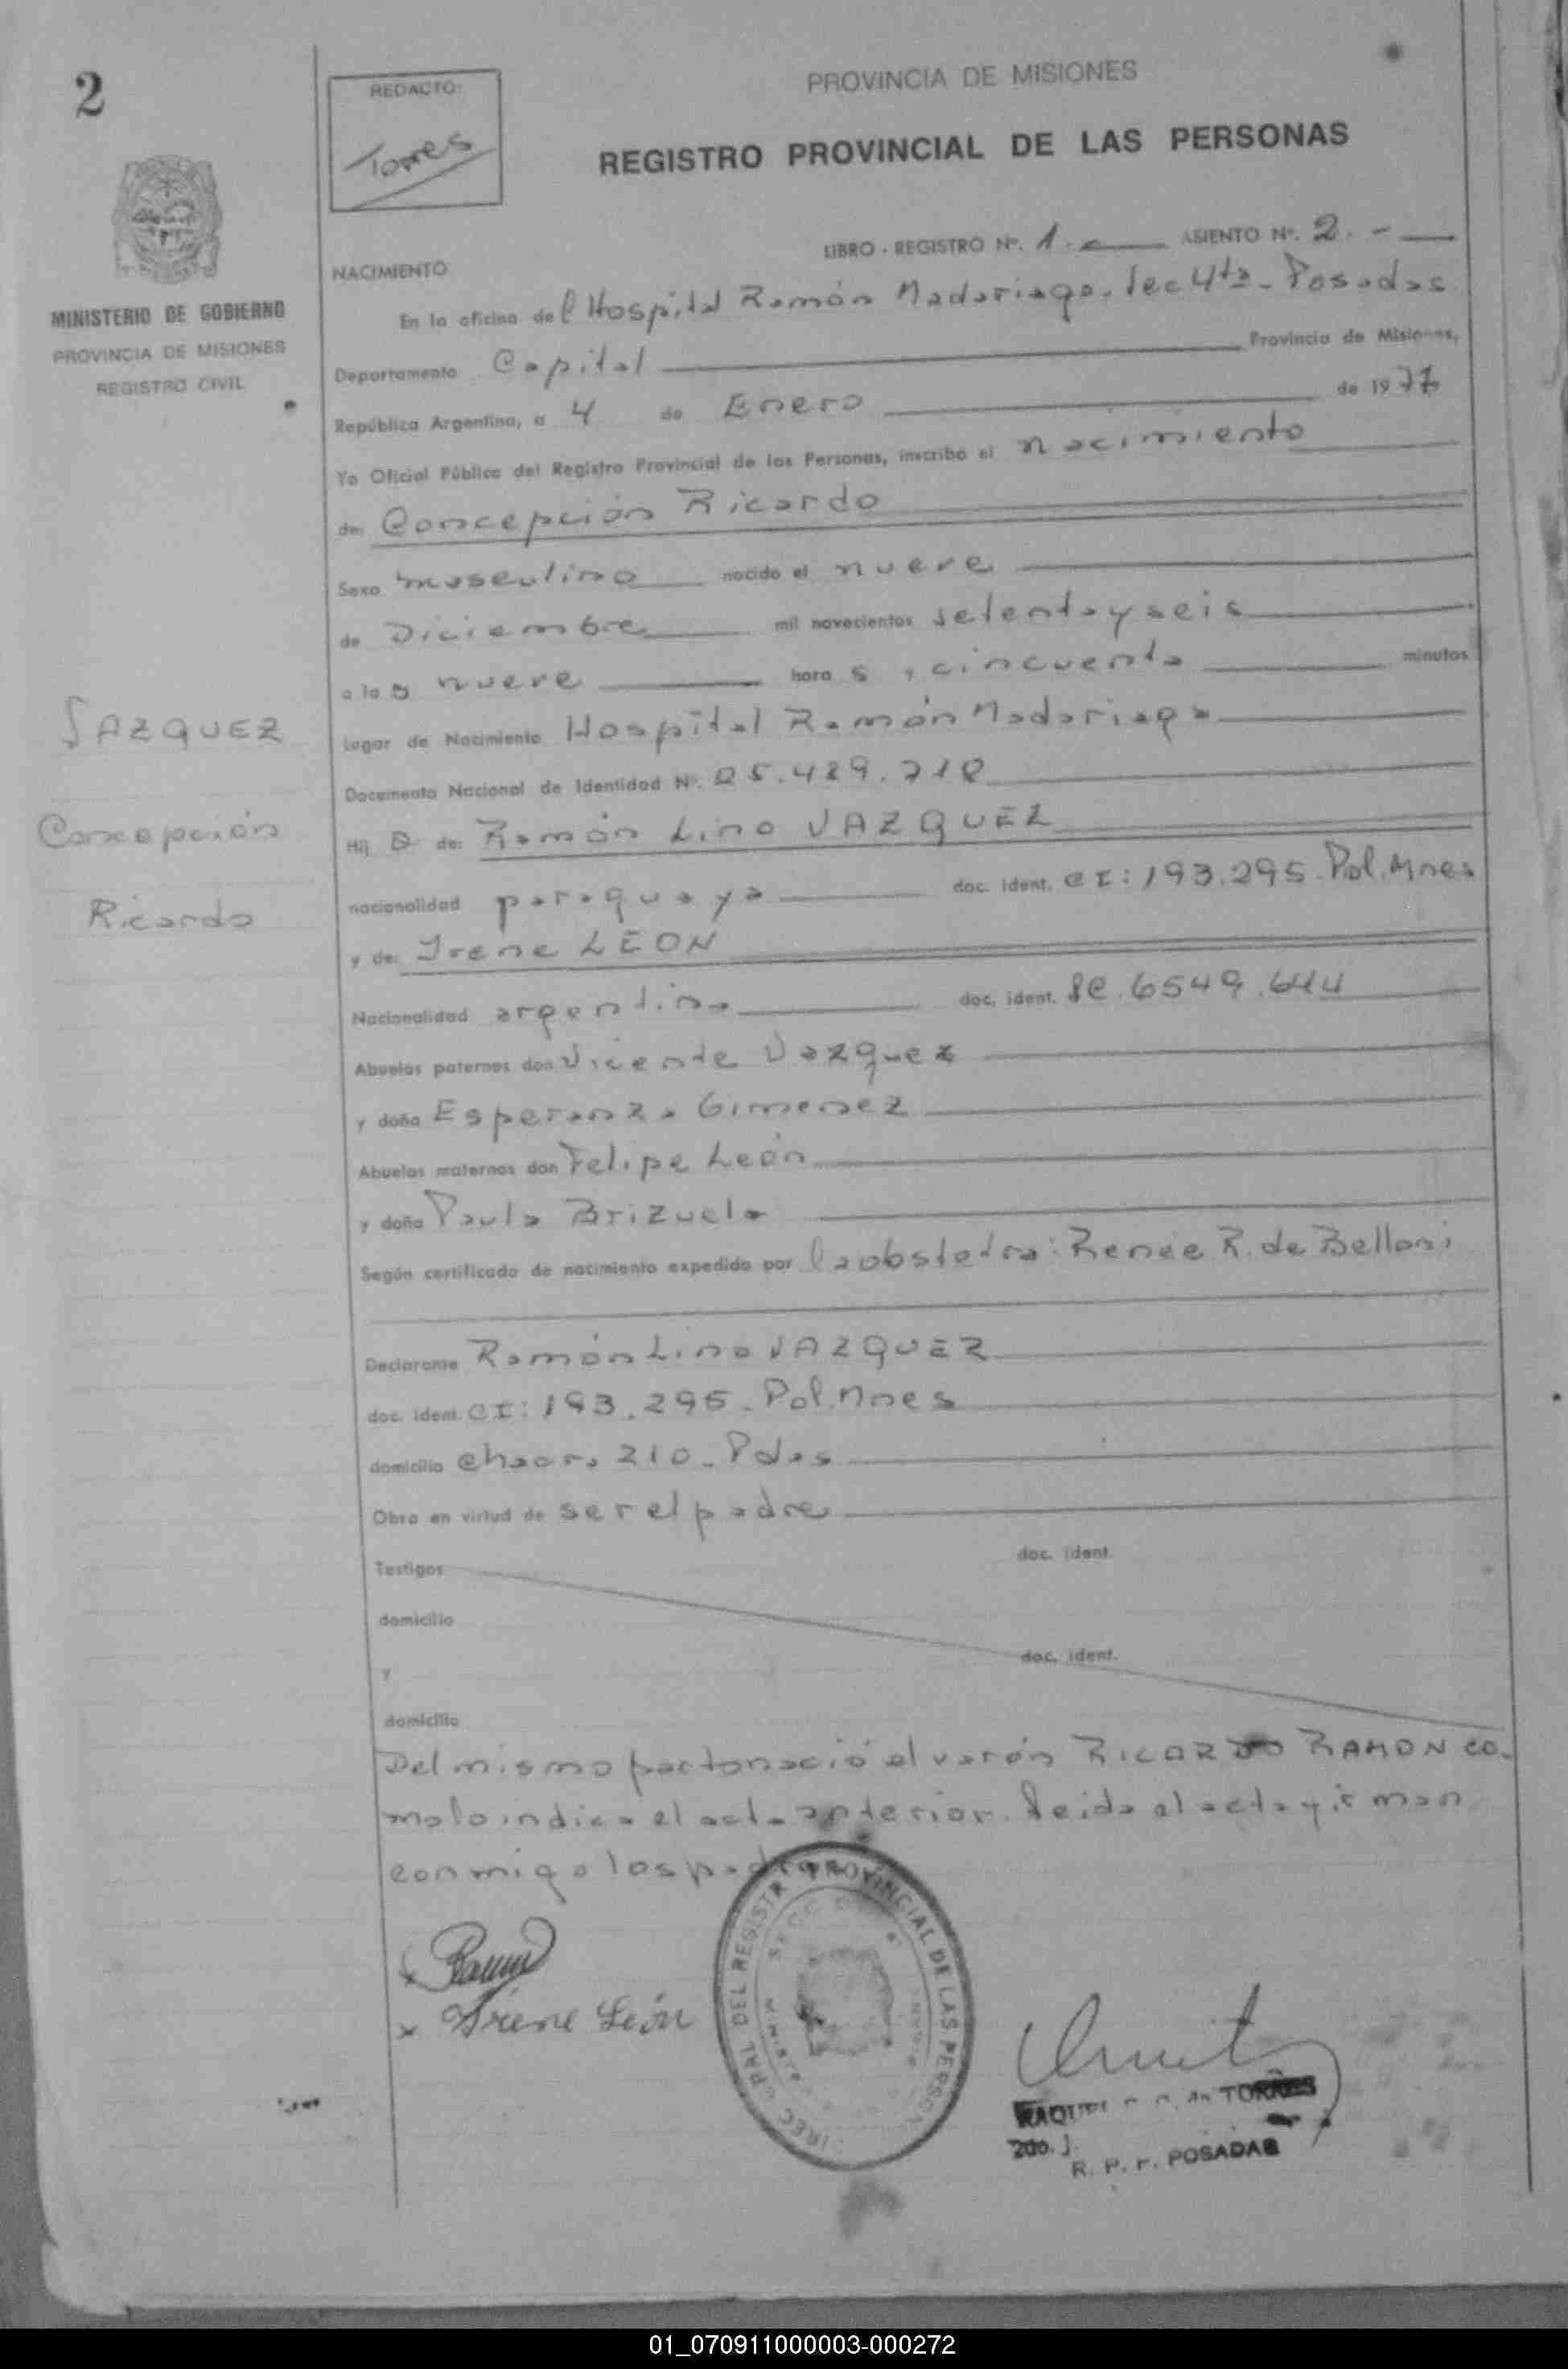 2
REDACTO:
Torres
PROVINCIA DE MISIONES
REGISTRO PROVINCIAL DE LAS PERSONAS
LIBRO - REGISTRO Nº. 1. ASIENTO Nº. 2. -
NACIMIENTO
MINISTERIO DE GOBIERNO
PROVINCIA DE MISIONES
REGISTRO CIVIL
En la oficina del Hospital Ramón Madariaga. Sec 4ta - Posadas
Departamento Capital Provincia de Misiones,
República Argentina, a 4 de Enero de 1977
Yo Oficial Público del Registro Provincial de las Personas, inscribo el nacimiento
de: Concepción Ricardo
Sexo masculino nacido el nueve
de Diciembre mil novecientos setenta y seis
a las nueve horas y cincuenta minutos
VAZQUEZ
Concepción
Ricardo
Lugar de Nacimiento Hospital Ramón Madariaga
Documento Nacional de Identidad Nº. 25.429.718
Hijo de: Ramón Lino VAZQUEZ
nacionalidad paraguaya doc. ident. CI: 193.295. Pol. Mnes
y de: Irene LEON
Nacionalidad argentina doc. ident. LC. 6549.644
Abuelos paternos don Vicente Vazquez
y doña Esperanza Gimenez
Abuelos maternos don Felipe León
y doña Paula Brizuela
Según certificado de nacimiento expedido por la obstetra: Renée R. de Belloni
Declarante Ramón Lino VAZQUEZ
doc. ident. CI: 193.295. Pol. Mnes
domicilio Chacra 210 - Pdas
Obra en virtud de ser el padre
Testigos doc. ident.
domicilio
y doc. ident.
domicilio
Del mismo parto nació el varón RICARDO RAMON co-
mo lo indica el acta anterior. Leida el acta firman
conmigo los padres
Irene León
GRAL DEL REGISTRO PROVINCIAL DE LAS PERSON
RAQUEL TORRES
2do. J.
POSADAS
01_070911000003-000272